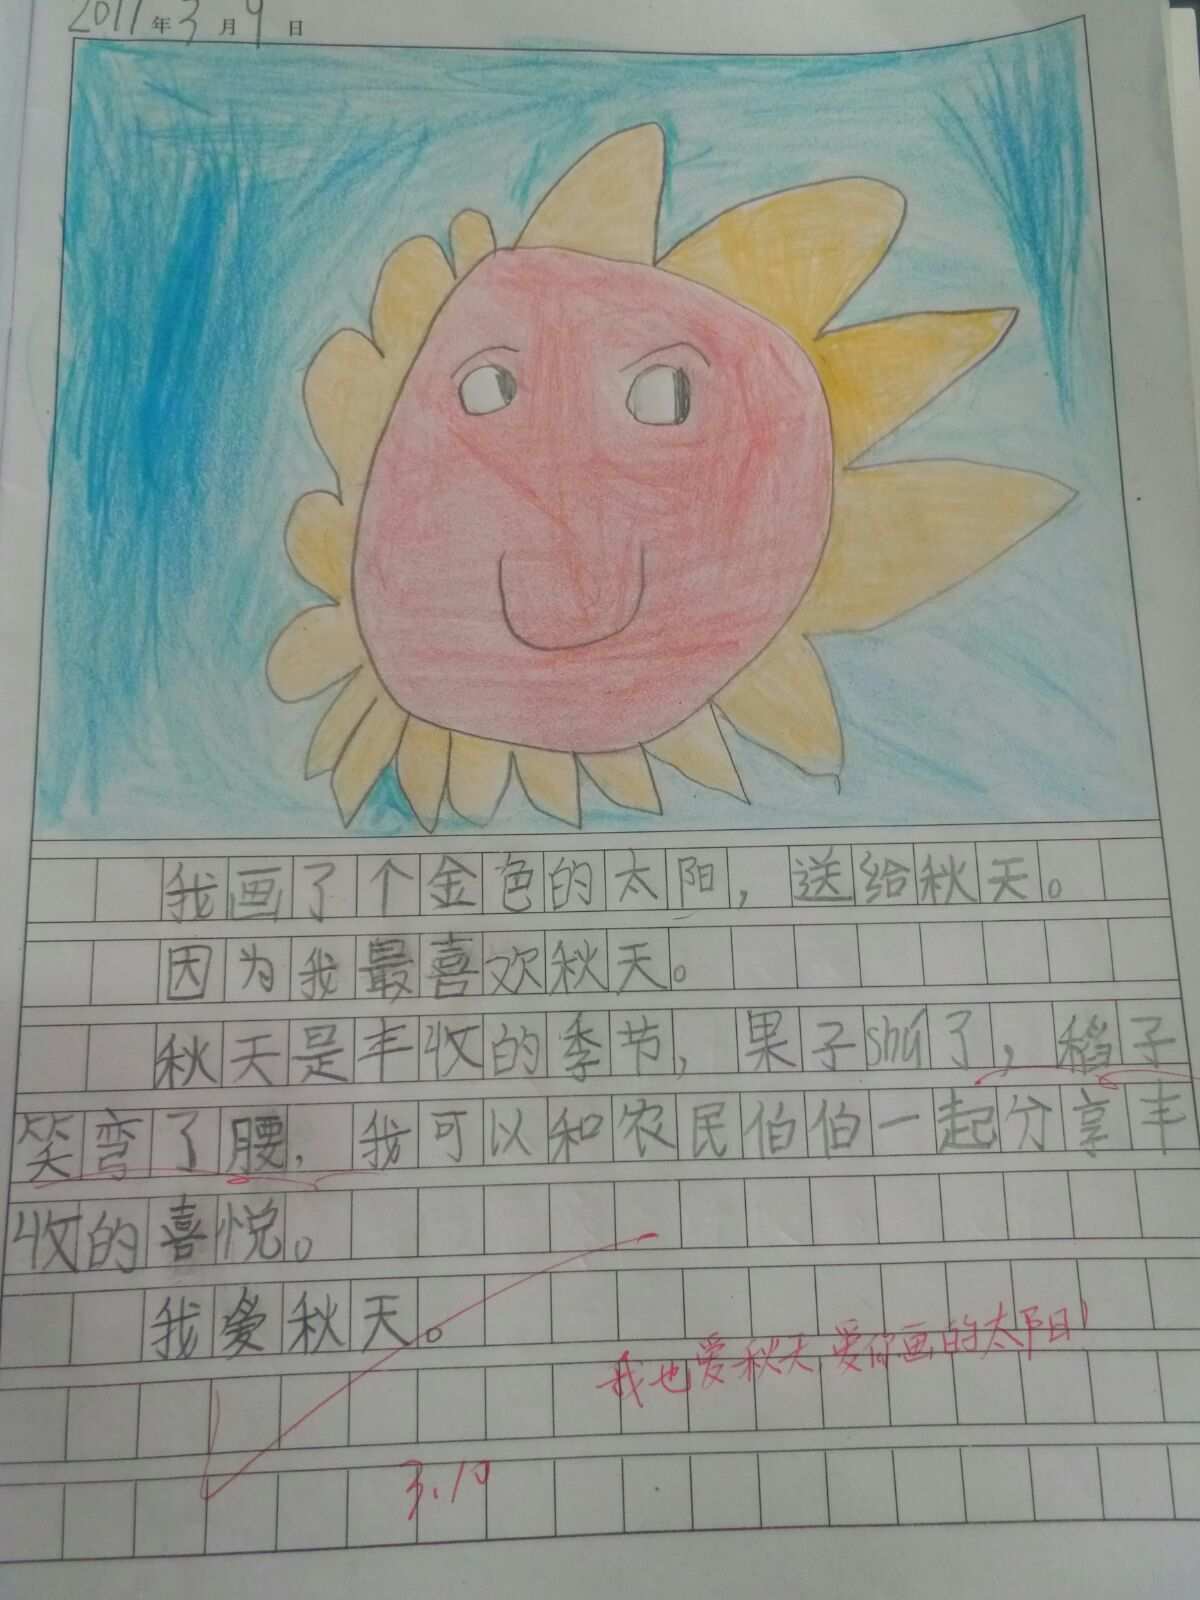 2017年3月9日
我画了个金色的太阳，送给秋天。
因为我最喜欢秋天。
秋天是丰收的季节，果子shú了，稻子
笑弯了腰，我可以和农民伯伯一起分享丰
收的喜悦。
我爱秋天。
我也爱秋天，爱你画的太阳！
3.10